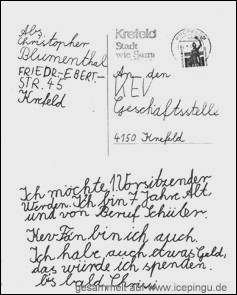 Abs.
Christopher
Blumenthal
FRIEDR-EBERT-
STR. 45
Krefeld
Krefeld
Stadt
wie Samt
An den
KEV
Geschäftsstelle
4150 Krefeld
Ich möchte 1. Vorsitzender
werden. Ich bin 7 Jahre Alt
und von Beruf Schüler.
Kev Fan bin ich auch.
Ich habe auch etwas Geld,
das würde ich spenden.
bis bald Chris
gesammelt auf www.icepingu.de